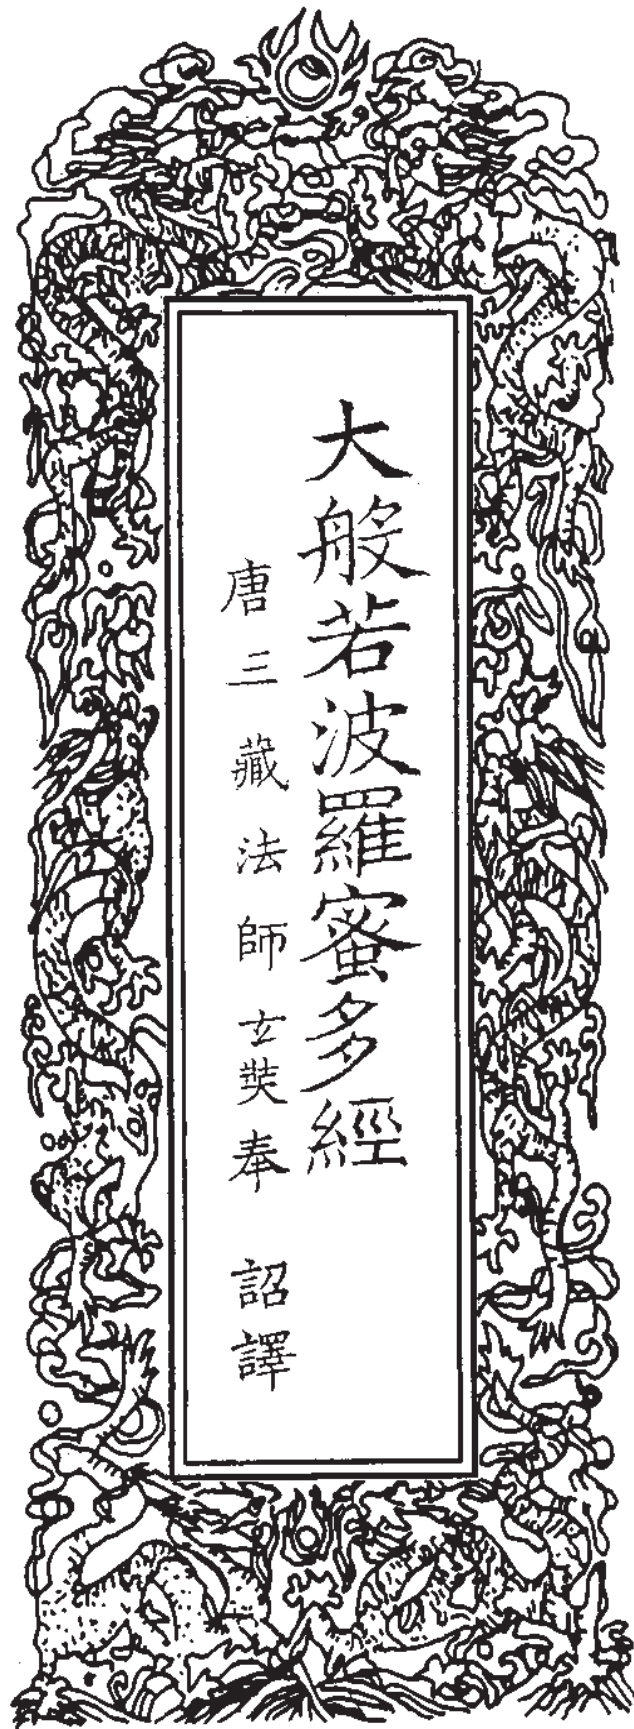 大般若波羅蜜多經
唐三藏法師玄奘奉　詔譯